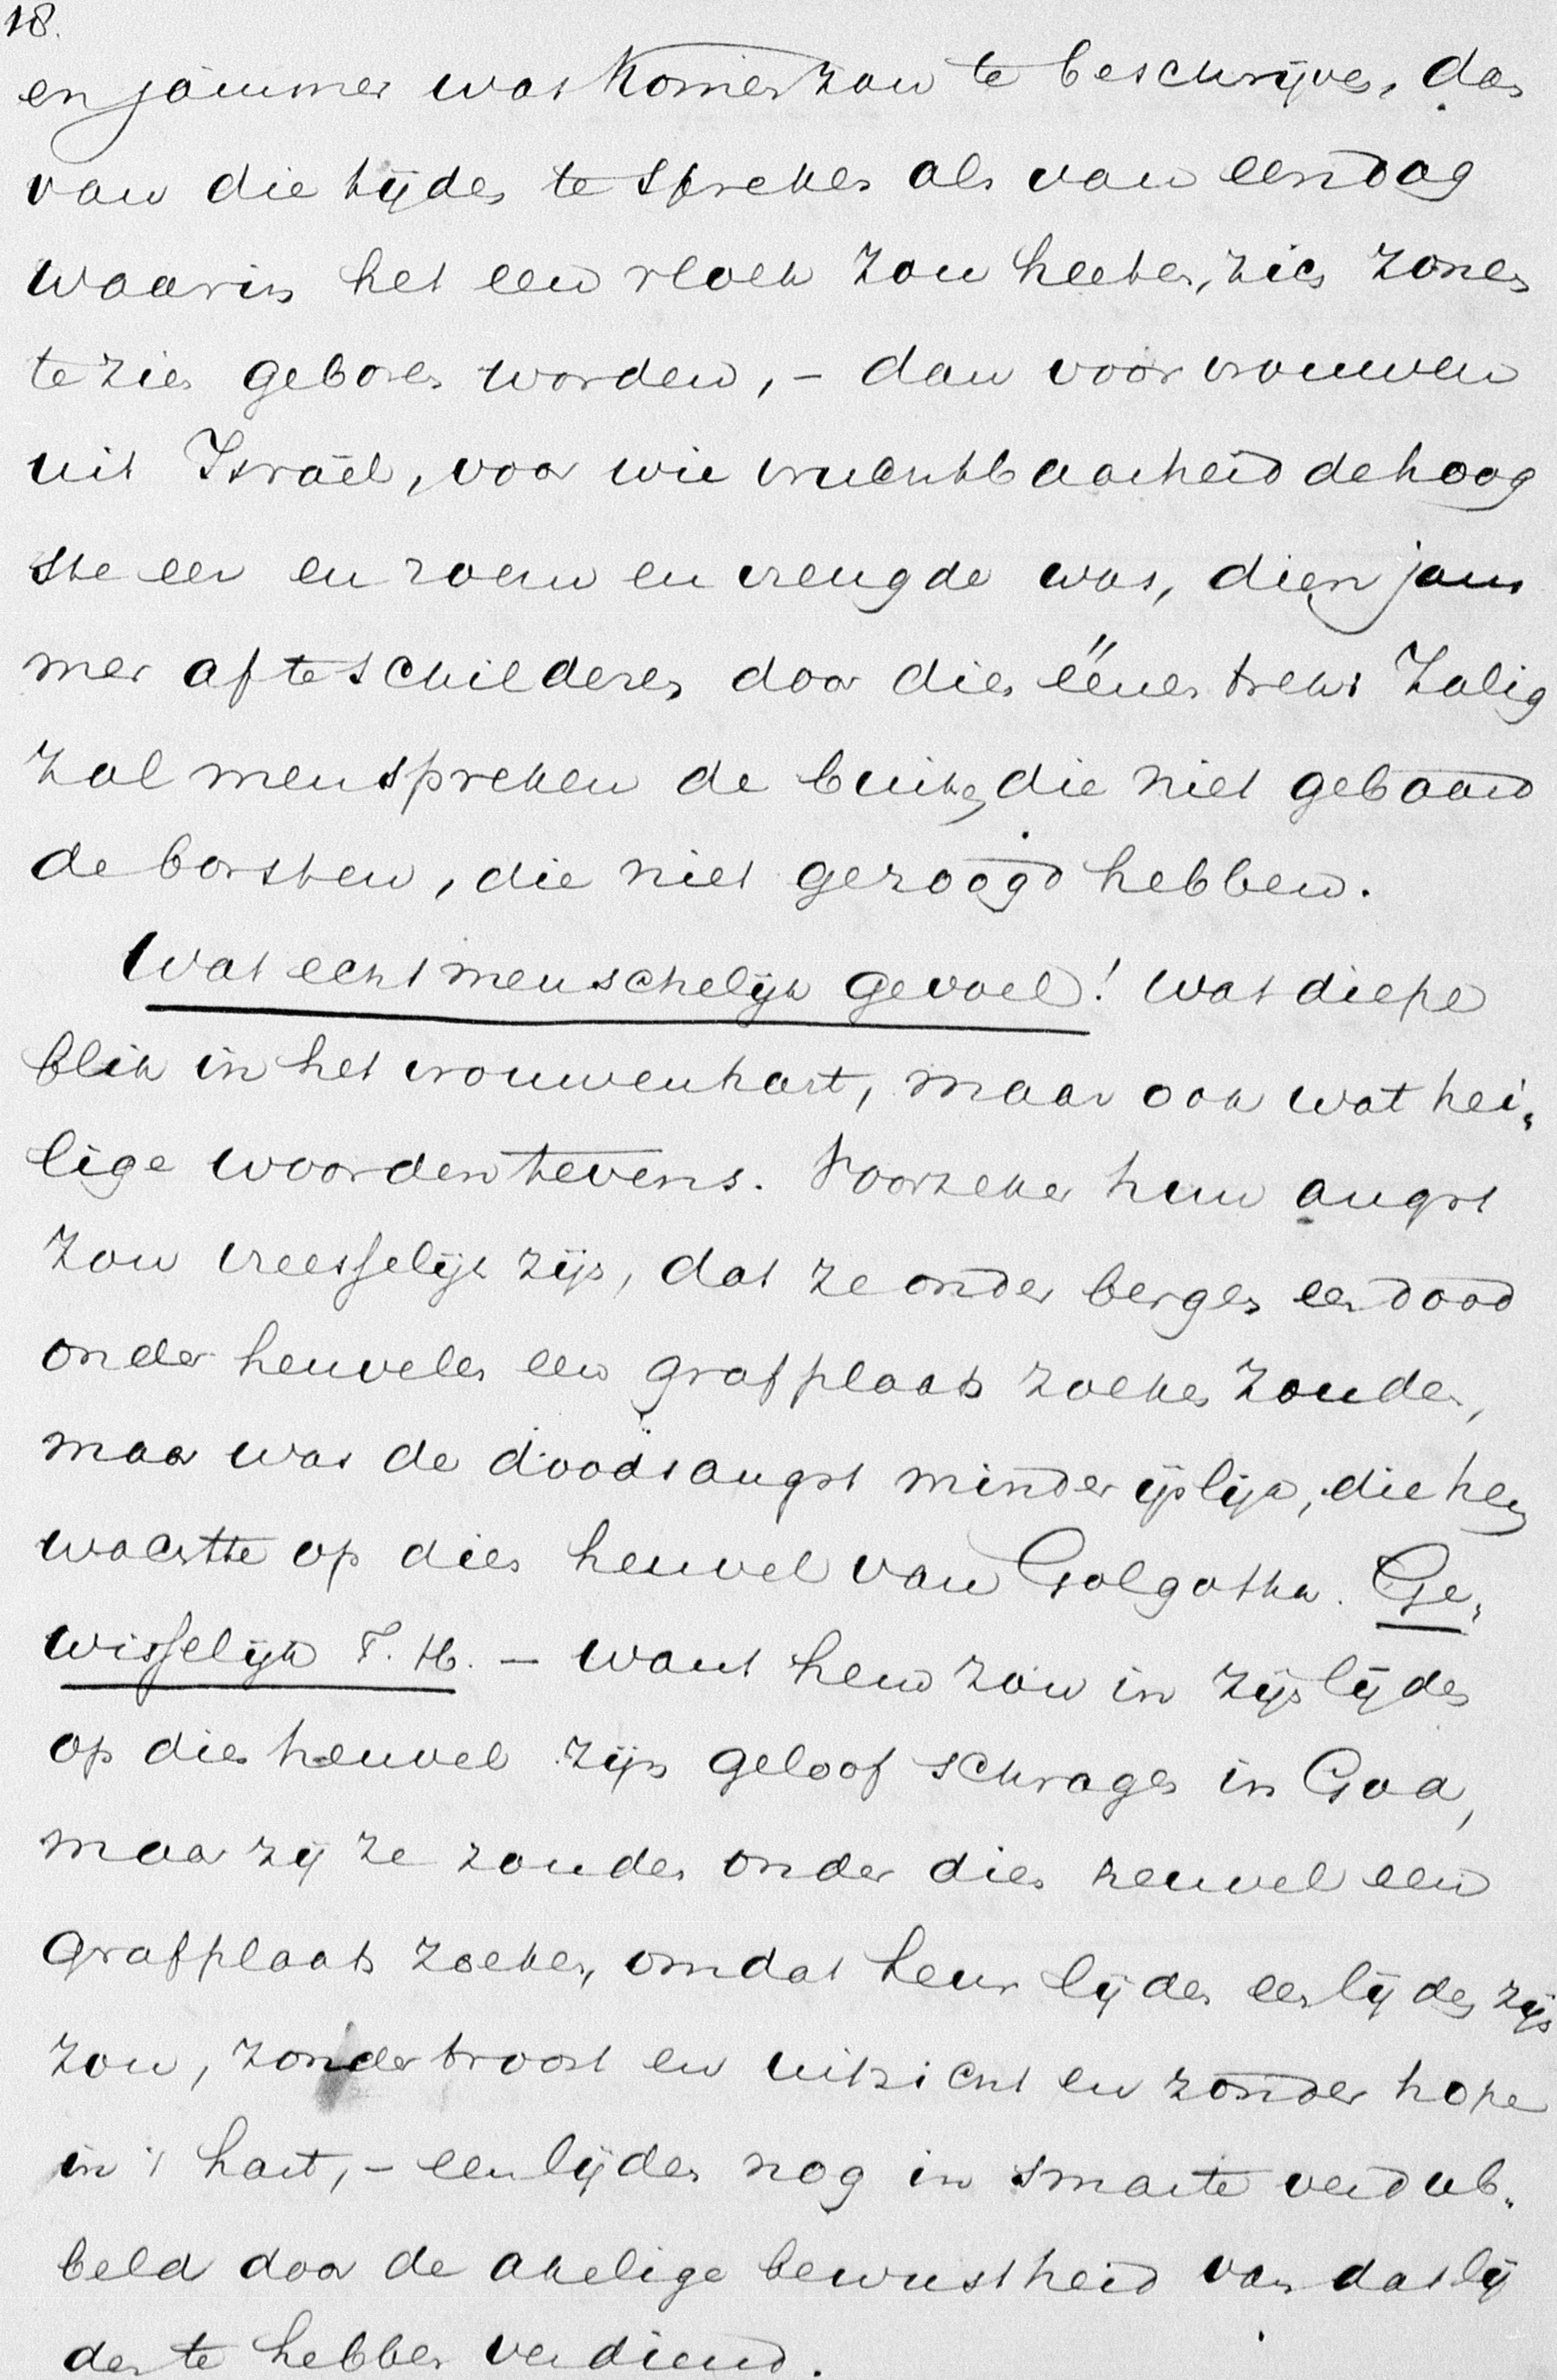 18.
en jammer wat komen zou te beschrijven, dan
van die tijden te spreken als van een dag
waarin het een vloek zou heeten, zich zonen
te zien geboren worden, – dan voor vrouwen
uit Israël, voor wie vruchtbaarheid de hoog
ste eer en roem en vreugde was, dien jam
mer af te schilderen door dien éénen trek: Zalig
zal men spreken de buiken die niet gebaard
de borsten, die niet gezoogd hebben.
Wat echt menschelijk gevoel! Wat diepe
blik in het vrouwenhart, maar ook wat hei„
lige woorden tevens. Voorzeker hun angst
zou vreesselijk zijn, dat ze onder bergen een dood
onder heuvelen een grafplaats zoeken zouden,
maar was de doodsangst minder ijslijk, die hem
wachtte op dien heuvel van Golgotha. Ge„
wisselijk T. H. – want hem zou in zijn lijden
op dien heuvel zijn geloof schragen in God,
maar zij ze zouden onder dien heuvel een
grafplaats zoeken, omdat heur lijden een lijden zijn
zou, zonder troost en uitzicht en zonder hope
in 't hart, – een lijden nog in smarte verdub„
beld door de akelige bewustheid van dat lij
den te hebben verdiend.